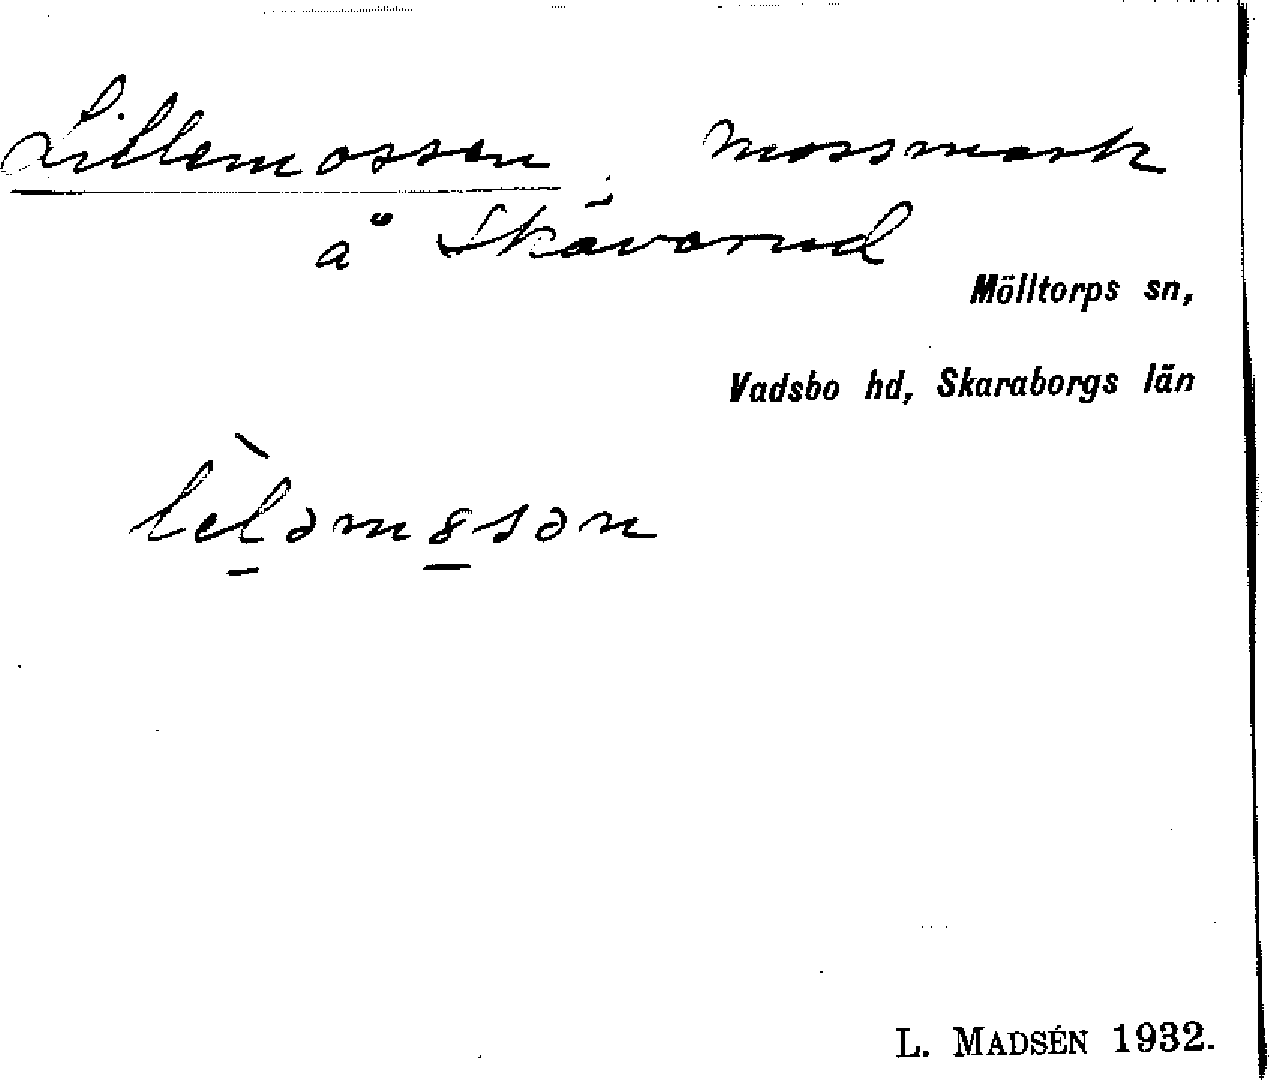 Lillemossen, mossmark
å Skäverud
Mölltorps sn,
Vadsbo hd, Skaraborgs län
lèləmɞsən
L. MADSÉN 1932.